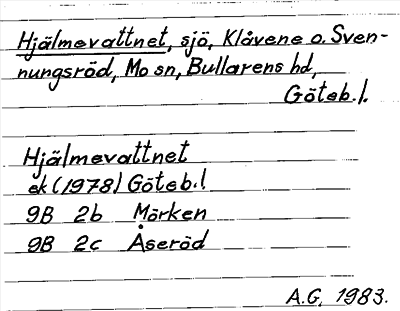 Hjälmevattnet, sjö, Klåvene o. Sven-
nungsröd, Mo sn, Bullarens hd,
Göteb. l.
Hjälmevattnet
ek (1978) Göteb. l
9B 2b Mörken
9B 2c Åseröd
A.G, 1983.